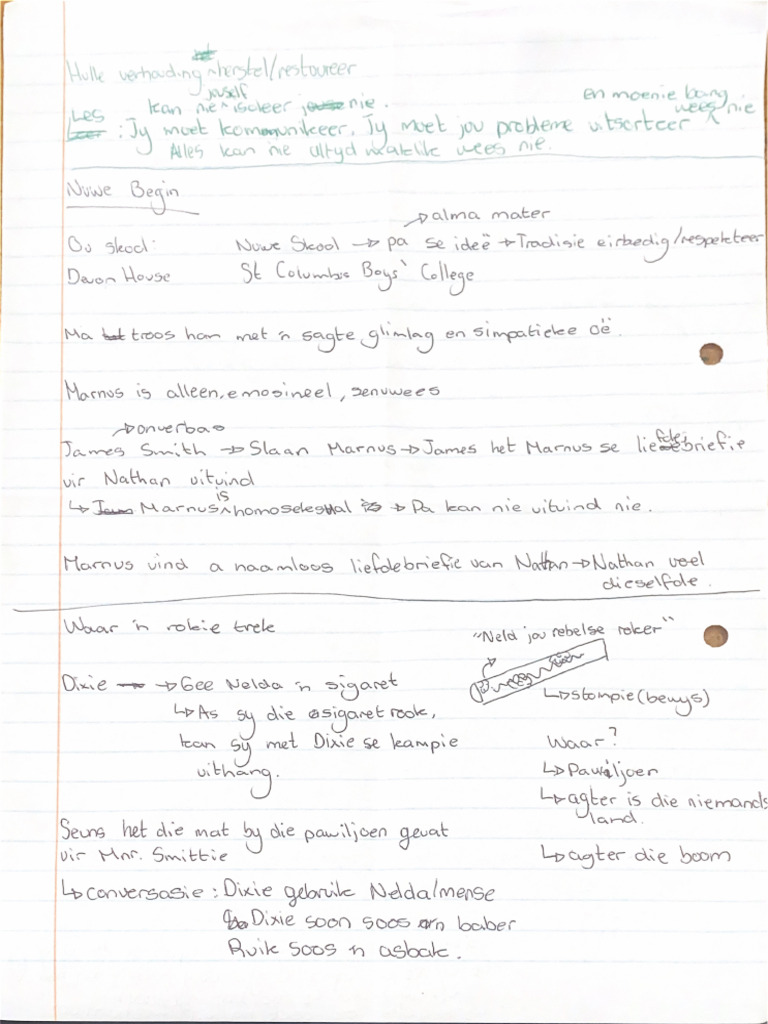 Hulle verhouding herstel/restoureer
kan nie jouself isoleer nie.
en moenie bang wees nie
Les : Jy moet kommunikeer. Jy moet jou probleme uitsorteer
Alles kan nie altyd maklik wees nie.
Nuwe Begin
alma mater
Ou skool: Nuwe Skool → pa se ideë → Tradisie eirbedig/respekteer
Devon House St Columbis Boys' College
Ma troos hom met 'n sagte glimlag en simpatieke oë.
Marnus is alleen, emosineel, senuwees
onverbas
James Smith → Slaan Marnus → James het Marnus se liefdesbriefie
vir Nathan uituind
↳ Marnus is homoseksual → Pa kan nie uituind nie.
Marnus vind a naamloos liefdebriefie van Nathan → Nathan voel
dieselfde.
Waar 'n rokie trek
"Neld jou rebelse roker"
Dixie → Gee Nelda 'n sigaret
↳ stompie (bewys)
↳ As sy die sigaret rook,
kan sy met Dixie se kampie
uithang.
Waar?
↳ Pawiljoen
↳ agter is die niemands
land.
↳ agter die boom
Seuns het die mat by die pawiljoen gevat
vir Mnr. Smittie
↳ conversasie : Dixie gebruik Nelda/mense
Dixie soen soos 'n baber
Ruik soos 'n asbak.